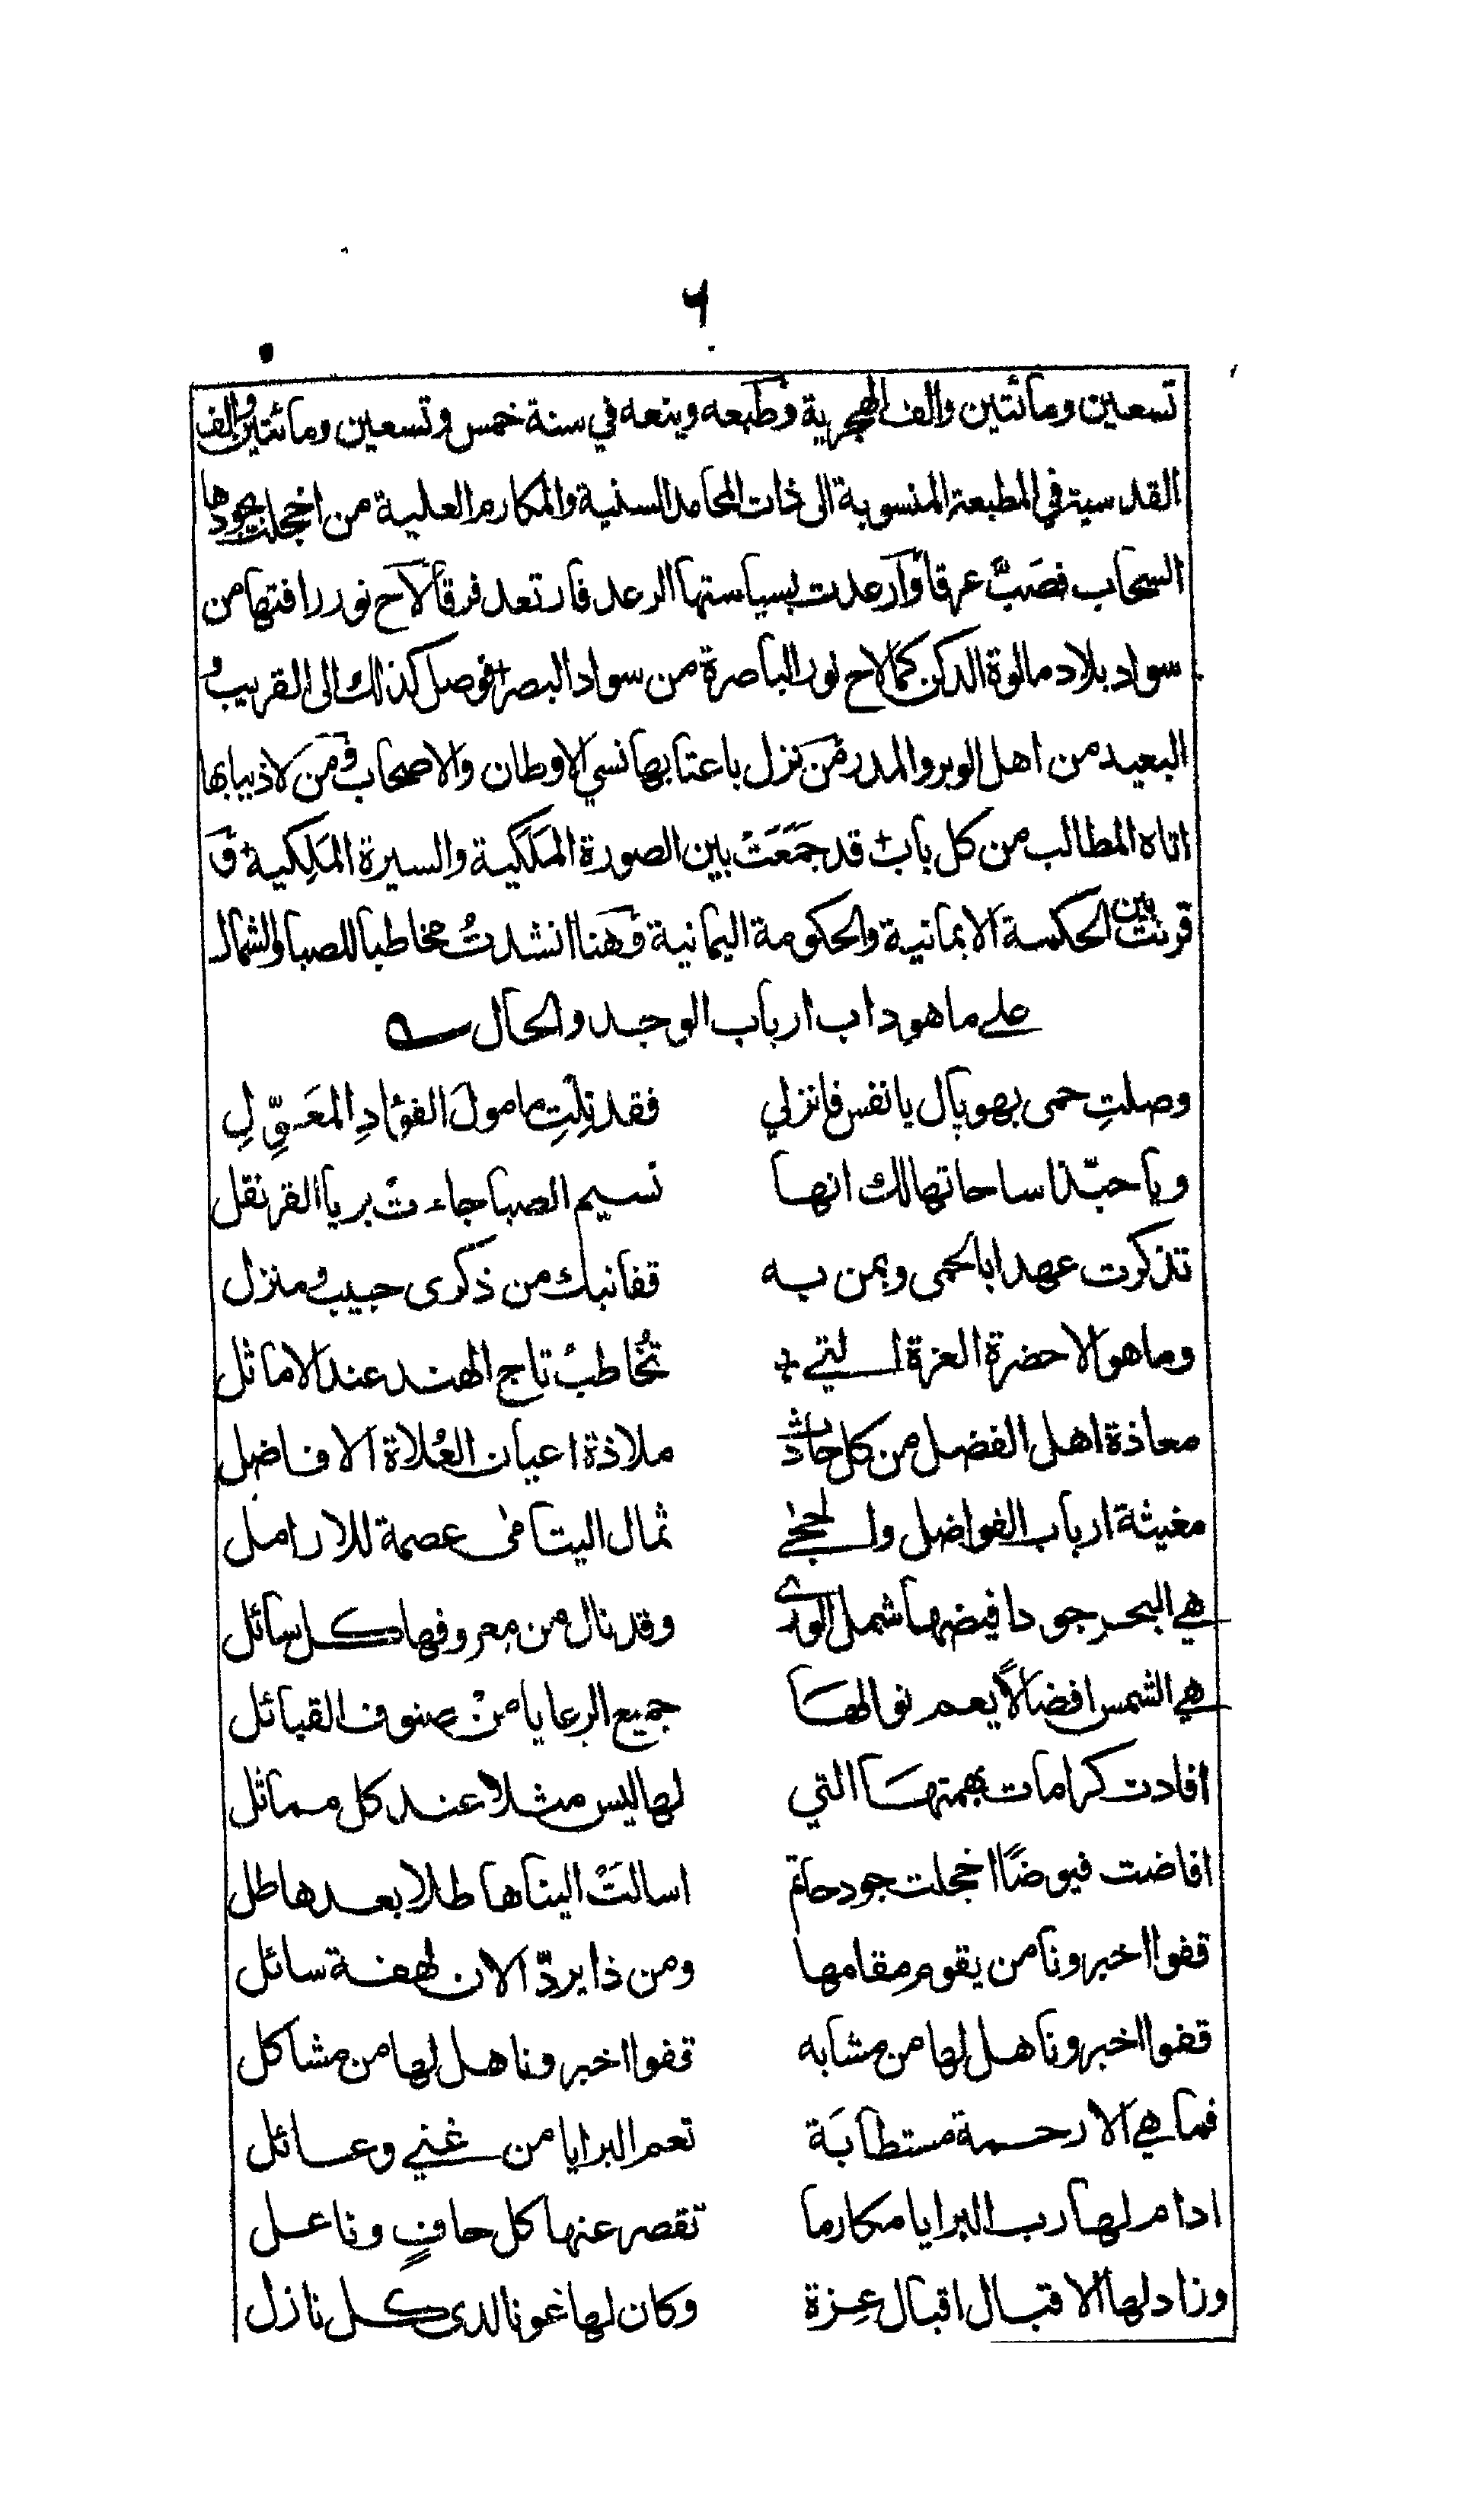 ٦
تسعين ومائتين والف الهجرية وطبعه وينعه في سنة خمس وتسعين ومائتين والف
القدسية في المطبعة المنسوبة الى ذات المحامد السنية والمكارم العلية من اخجلت بجودها
السحاب فصَبَّ عرقا وارعدت بسياستها الرعد فارتعد فرقا لاح نور رافتها من
سواد بلاد مالوة الدكن كما لاح نور الباصرة من سواد البصر+ فوصل كذلك الى القريب و
البعيد من اهل الوبر والمدر فمن نزل باعتابها نسي الاوطان والاصحاب ومن لاذ ببابها
اتاه المطالب من كل باب+ قد جَمَعَتْ بين الصورة المَلَكية والسيرة المَلِكية+ و
قرنتْ بين الحكمة الايمانية والحكومة اليمانية وهنا انشدتُ مخاطبا للصبا والشمال
على ما هو داب ارباب الوجد والحال ؎
وصلتِ حمى بهوپال يا نفس فانزلي فقد نِلْتِ مامولَ الفؤادِ المعَوِّلِ
ويا حبّذا ساحاتها لك انها نسيم الصبا جاءتْ بريا القرنفل
تذكرت عهدا بالحمى وبمن به قفا نبك من ذكرى حبيب ومنزل
وما هو الا حضرة العزة التي + تُخاطبُ تاج الهند عند الاماثل
معاذة اهل الفضل من كل حادث ملاذة اعيان العُلاة الافاضل
مغيثة ارباب الفواضل والحجى ثمال اليتامى عصمة للارامل
هي البحر جودا فيضها شمل الورى وقد نال من معروفها كل سائل
هي الشمس افضالاً يعم نوالها جميع الرعايا منْ صنوف القبائل
افادت كرامات بهمتها التي لها ليس مثلا عند كل مماثل
افاضت فيوضًا اخجلت جود حاتم اسالتْ الينا ها طلا بعد هاطل
قفوا اخبرونا من يقوم مقامها ومن ذا يردّ الان لهفة سائل
قفوا اخبرونا هل لها من مشابه قفوا اخبرونا هل لها من مشاكل
فما هي الا رحمة مستطابَة تعم البرايا من غني وعائل
ادام لها رب البرايا مكارما تقصر عنها كل حافٍ وناعل
وزاد لها الاقبال اقبال عِزة وكان لها غونا لدى كل نازل